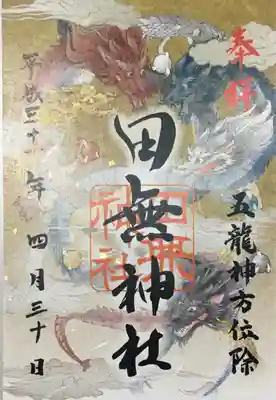 奉拝
五龍神方位除
田無神社
田無神社
平成三十一年 四月三十日